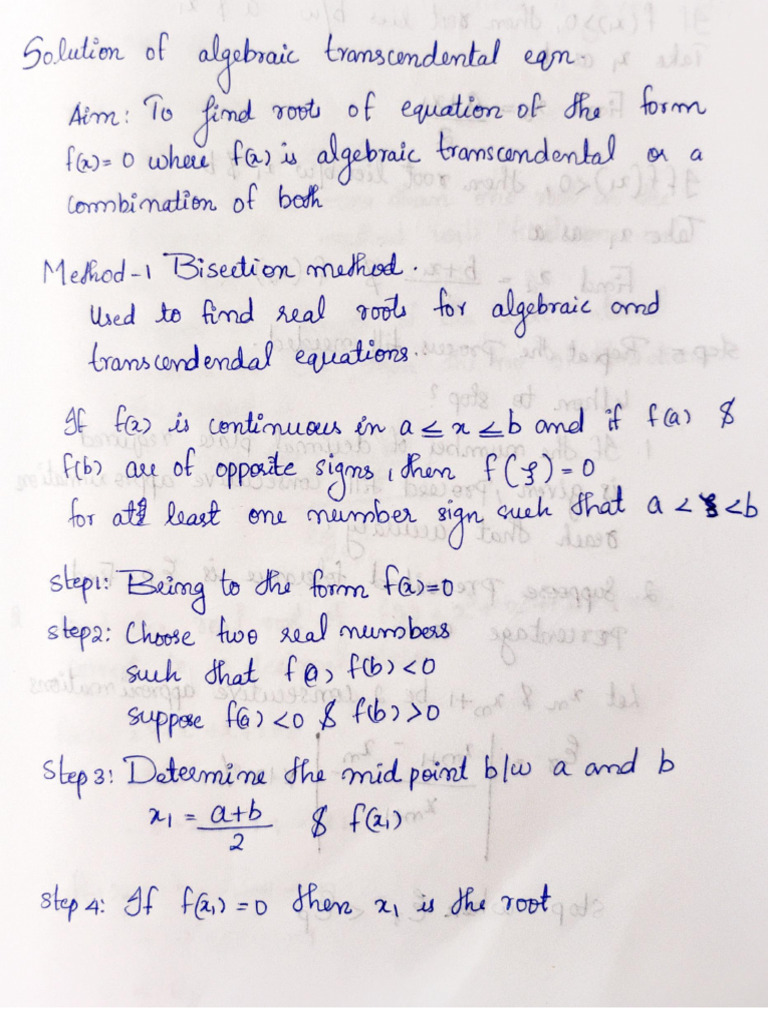 Solution of algebraic transcendental eqn.
Aim: To find roots of equation of the form
f(x)=0 where f(x) is algebraic transcendental or a
combination of both
Method-1 Bisection method.
Used to find real roots for algebraic and
transcendendal equations.
If f(x) is continuous in a ≤ x ≤ b and if f(a) &
f(b) are of opposite signs, then f(ξ)=0
for at least one number sign such that a < ξ < b
Step1: Being to the form f(x)=0
Step2: Choose two real numbers
such that f(a) f(b) < 0
suppose f(a) < 0 & f(b) > 0
Step 3: Determine the mid point b/w a and b
x₁ = a+b/2 & f(x₁)
Step 4: If f(x₁) = 0 then x₁ is the root